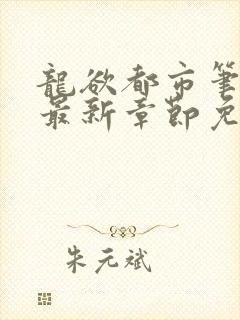 龍欲都市筆
最新章節免
朱元斌